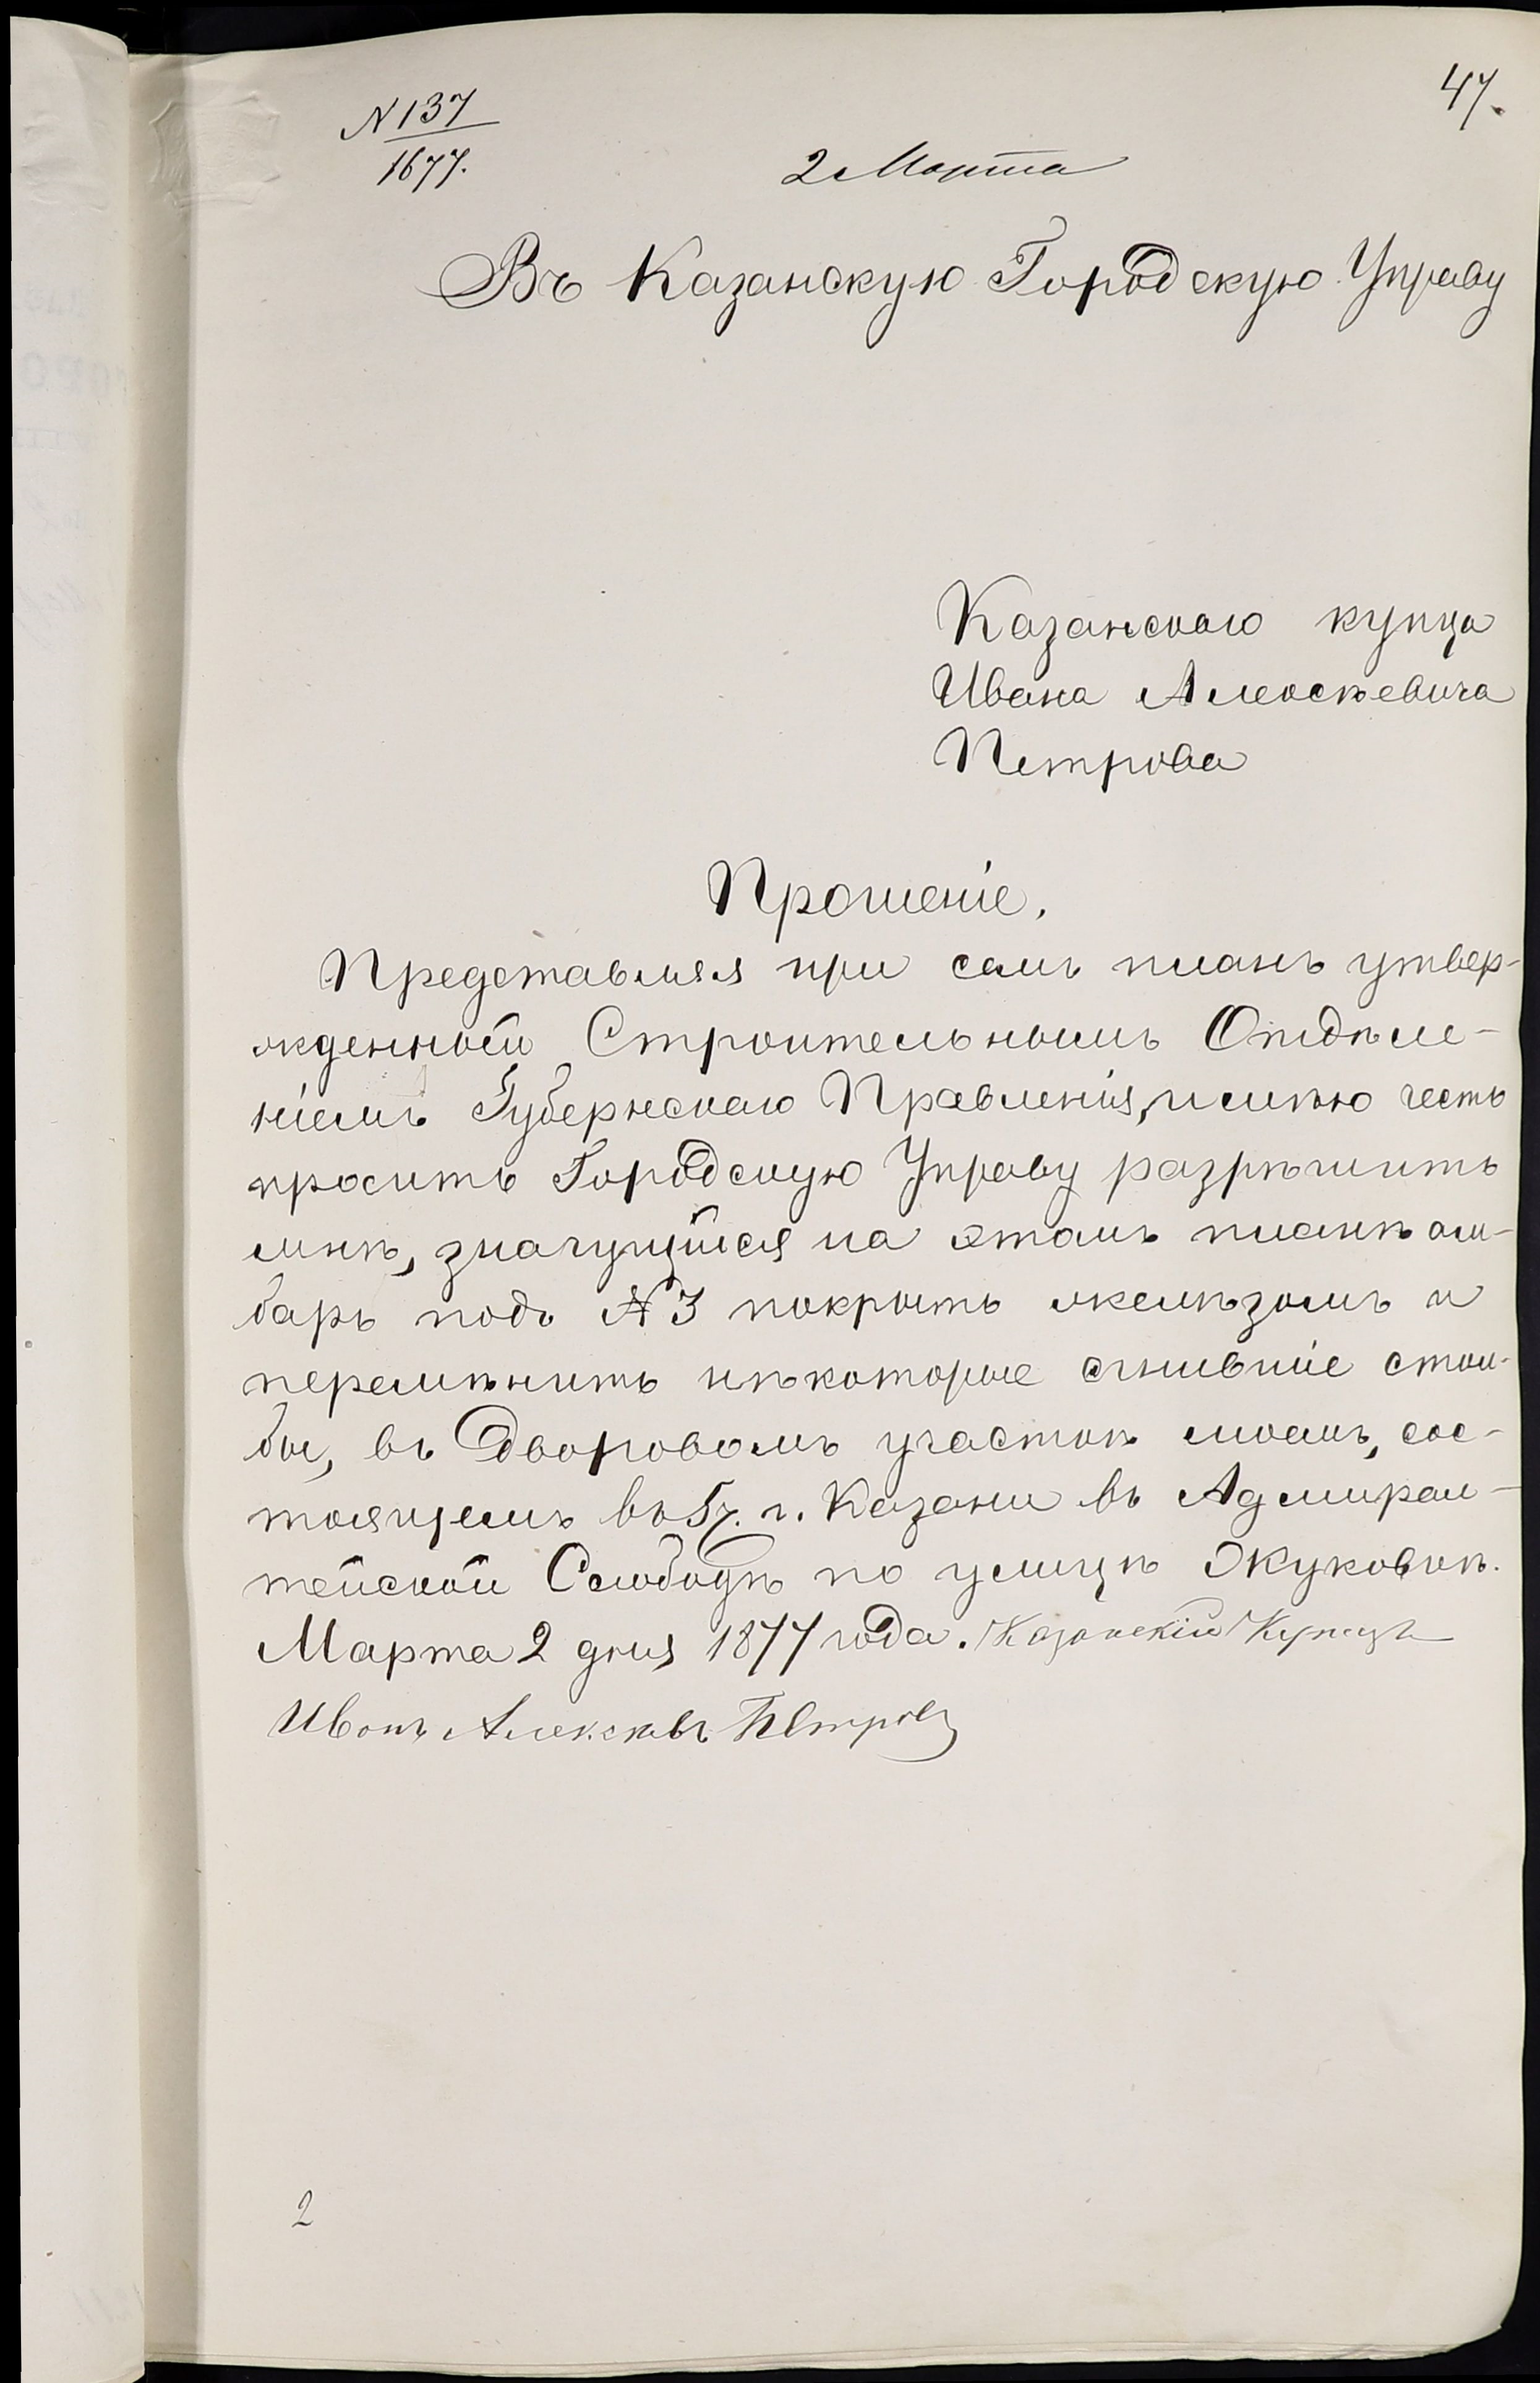 47.
N 137
1677.
2 Марта
Въ Казанскую Городскую Управу
Казанскаго купца
Ивана Алексѣевича
Петрова
Прошеніе.
Представляя при семъ планъ утвер-
жденный Строительнымъ Отдѣле-
ніемъ Губернскаго Правленія, имѣю честь
просить Городскую Управу разрѣшить
мнѣ, значущійся на этомъ планѣ ам-
баръ подъ № 3 покрыть желѣзомъ и
перемѣнить нѣкоторые сгнившіе стол-
бы, въ Дворовомъ участкѣ моемъ, сос-
тоящемъ въ 5 ч. г. Казани въ Адмирал-
тейской Слободѣ по улицѣ Жуковкѣ.
Марта 2 дня 1877 года. Казанскій Купецъ
Иванъ Алексѣвъ Петровъ
2